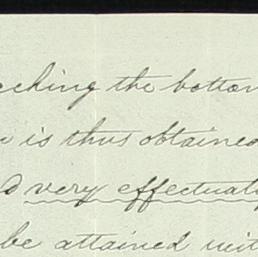 the bottom
is thus obtained
very effectually
be attained with